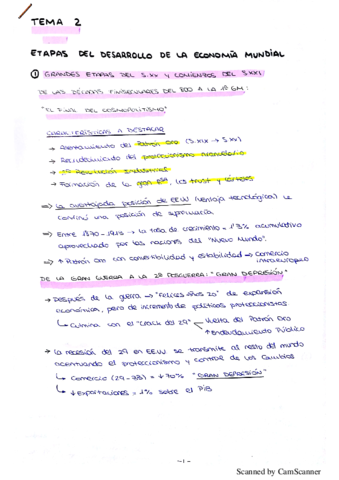 TEMA 2
ETAPAS DEL DESARROLLO DE LA ECONOMÍA MUNDIAL
① GRANDES ETAPAS DEL S.XX Y COMIENZOS DEL S.XXI
DE LAS DÉCADAS FINISECULARES DEL 800 A LA 1ª GM:
"EL FINAL DEL COSMOPOLITISMO"
CARACTERÍSTICAS A DESTACAR
→ del Patrón Oro (S.XIX → S.XX)
→ Recrudecimiento del proteccionismo
→ 2ª Revolución Industrial
→ Formación de la gran Eª, los trust y cárteles
→ La aventajada posición de EEUU (ventaja tecnológica) le
una posición de supremacía
→ Entre 1870 - 1913 → la tasa de crecimiento = 1'3% acumulativo
aprovechado por las naciones del "Nuevo Mundo".
→ ↑ Patrón Oro con convertibilidad y estabilidad → comercio
intraeuropeo
DE LA GRAN GUERRA A LA 2ª POSGUERRA: "GRAN DEPRESIÓN"
→ Después de la guerra → "Felices años 20" de expansión
económica, pero de incremento de políticas proteccionistas
↳ Culmina con el "Crack del 29" Vuelta del Patrón Oro
↑ Endeudamiento Público
→ La recesión del 29 en EEUU se transmite al resto del mundo
acentuando el proteccionismo y control de los cambios
↳ Comercio (29-33) = ↓70% "GRAN DEPRESIÓN"
↳ ↓ Exportaciones = 1% sobre el PIB
-1-
Scanned by CamScanner